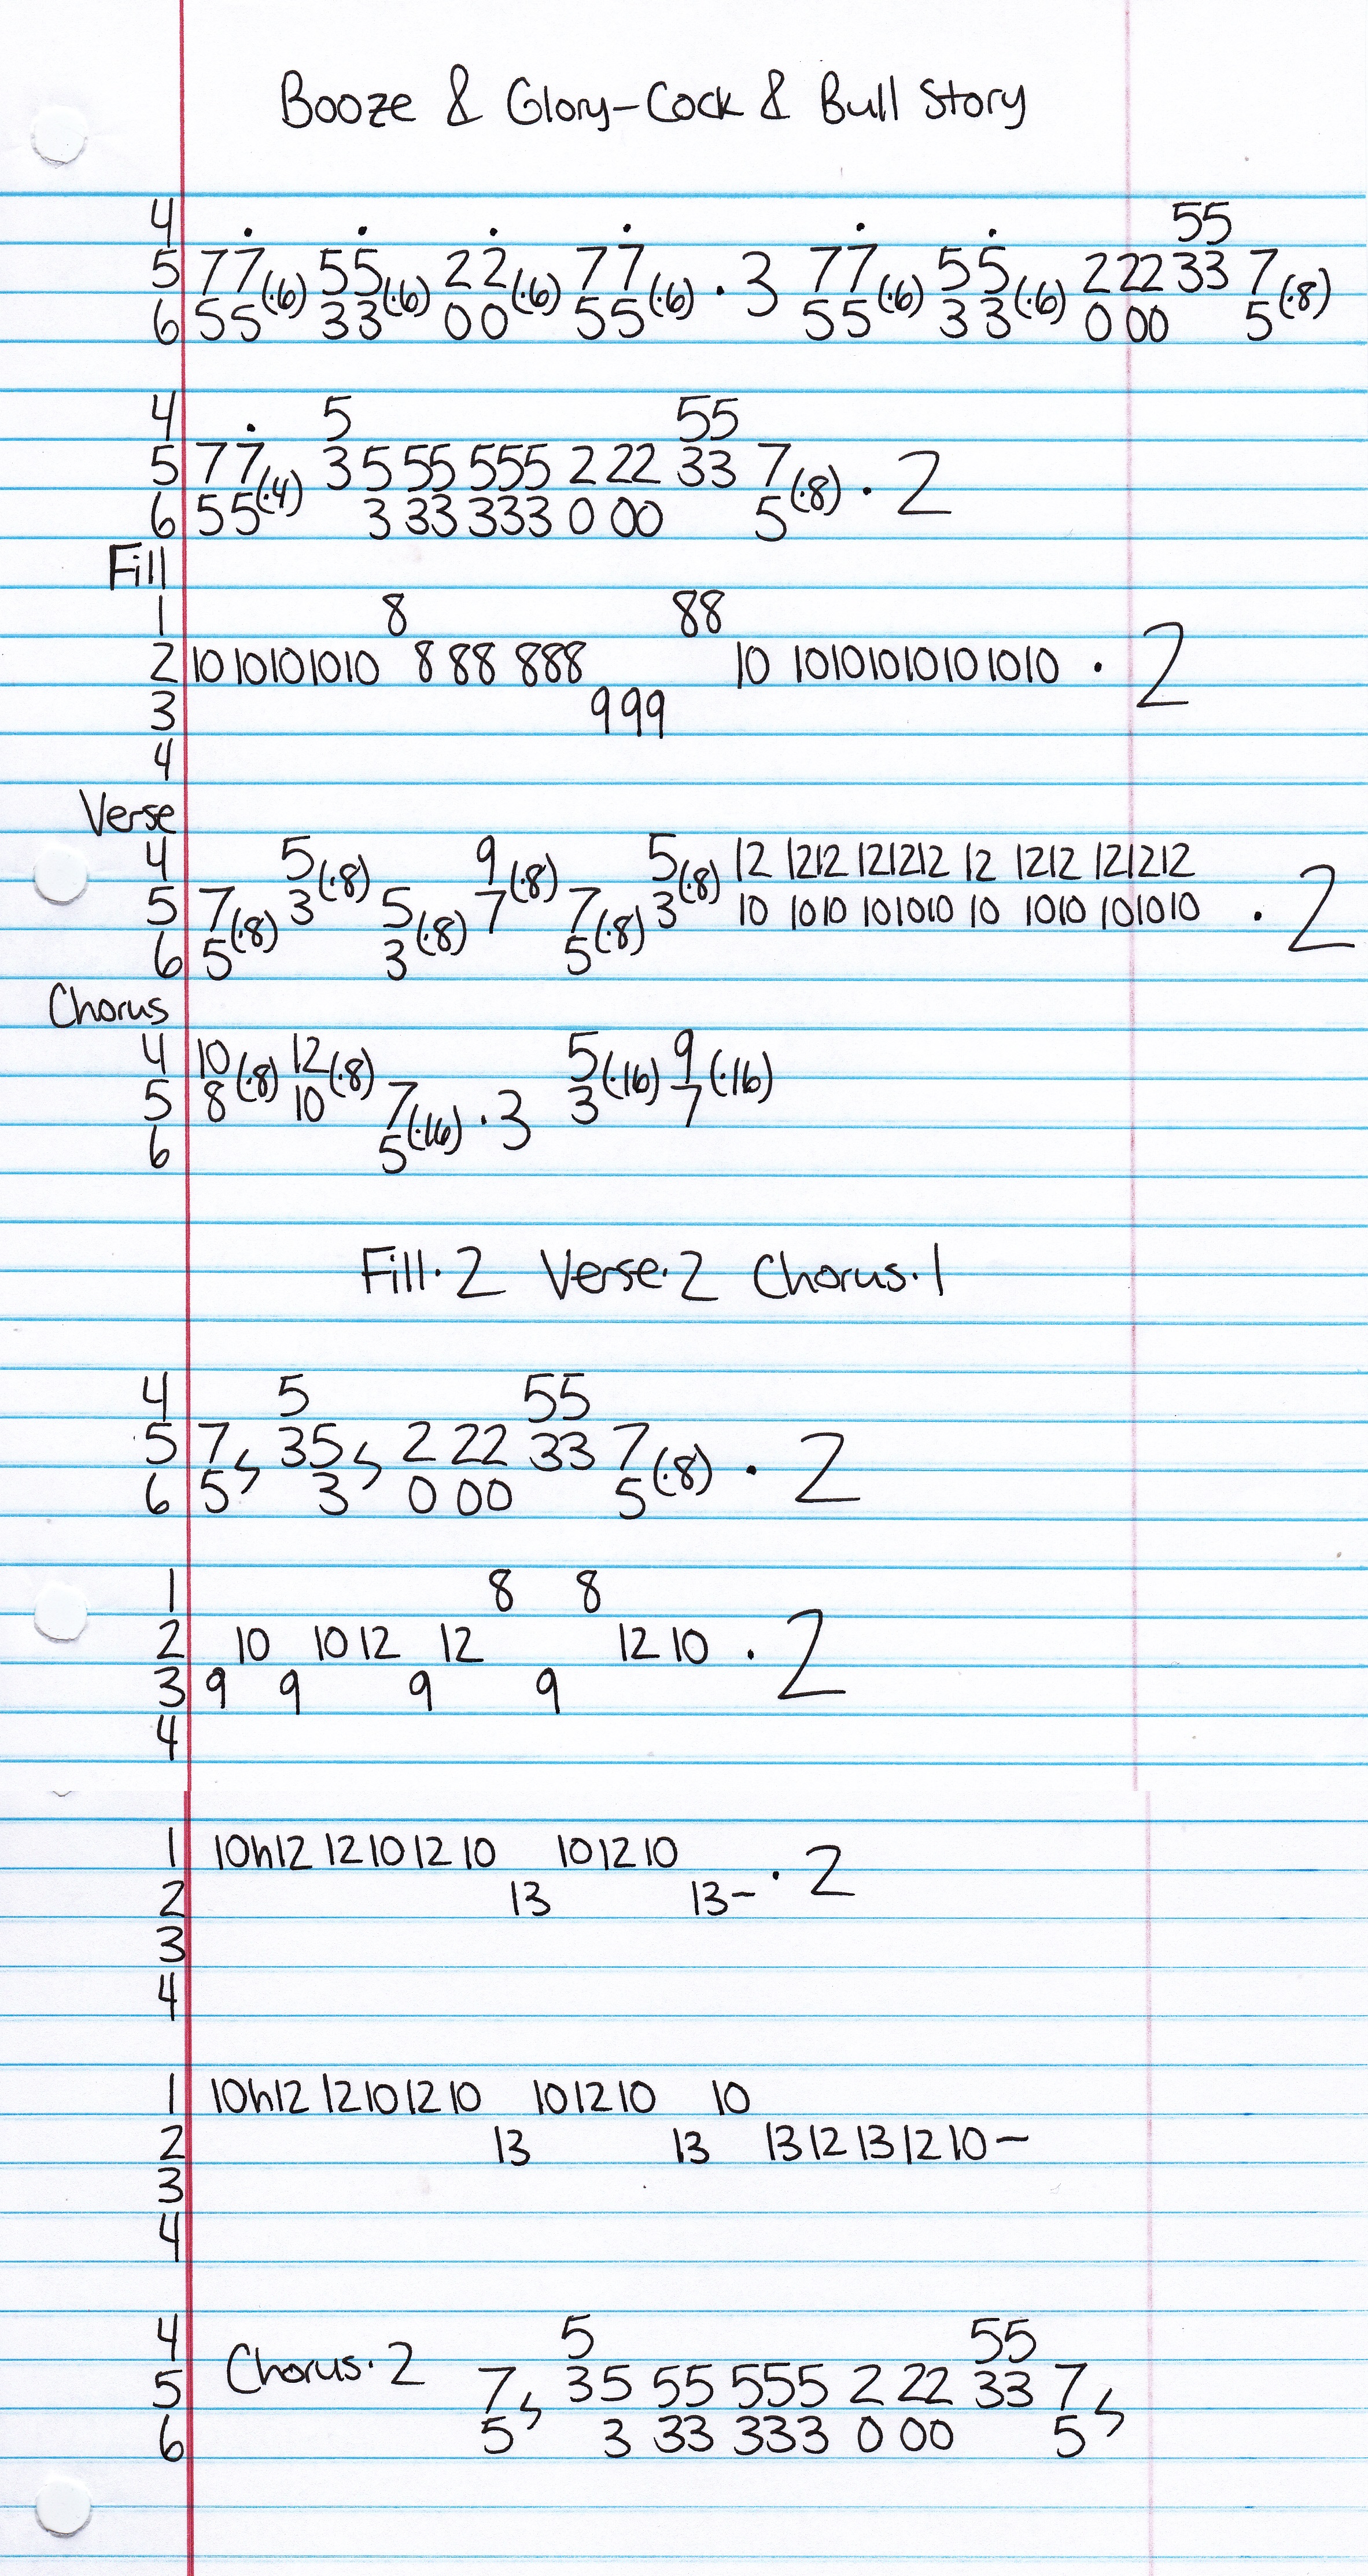 Booze & Glory-Cock & Bull Story
4 . . . . . . 55
5 77(·6) 55(·6) 22(·6) 77(·6) · 3 77(·6) 55(·6) 2 22 33 7(·8)
6 55 33 00 55 55 33 0 00 5
4 . 5 55
5 77(·4) 3 5 55 555 2 22 33 7(·8) · 2
6 55 3 33 333 0 00 5
Fill
1 8 88
2 10 10101010 8 88 888 10 10101010101010 · 2
3 999
4
Verse
4 5(·8) 9(·8) 5(·8) 12 1212 121212 12 1212 121212
5 7(·8) 3 5(·8) 7 7(·8) 3 10 1010 101010 10 1010 101010 · 2
6 5 3 5
Chorus
4 10(·8) 12(·8) 5(·16) 9(·16)
5 8 10 7(·16) · 3 3 7
6 5
Fill·2 Verse·2 Chorus·1
4 5 55
5 7 35 2 22 33 7(·8) · 2
6 5 3 0 00 5
1 8 8
2 10 10 12 12 12 10 · 2
3 9 9 9 9
4
1 10h12 12 10 12 10 10 12 10 · 2
2 13 13-
3
4
1 10h12 12 10 12 10 10 12 10 10
2 13 13 13 12 13 12 10 -
3
4
4 5 55
5 Chorus·2 7 35 55 555 2 22 33 7
6 5 3 33 333 0 00 5